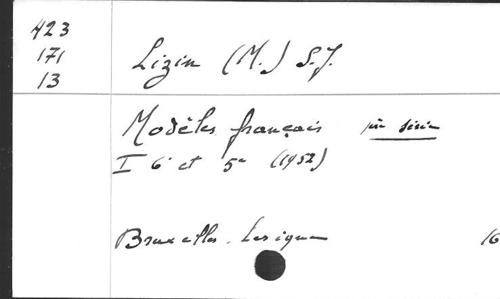 423
171
13
Lizin (M.) S.J.
Modèles français
I 6e et 5e (1952)
Bruxelles. Lesigne
16